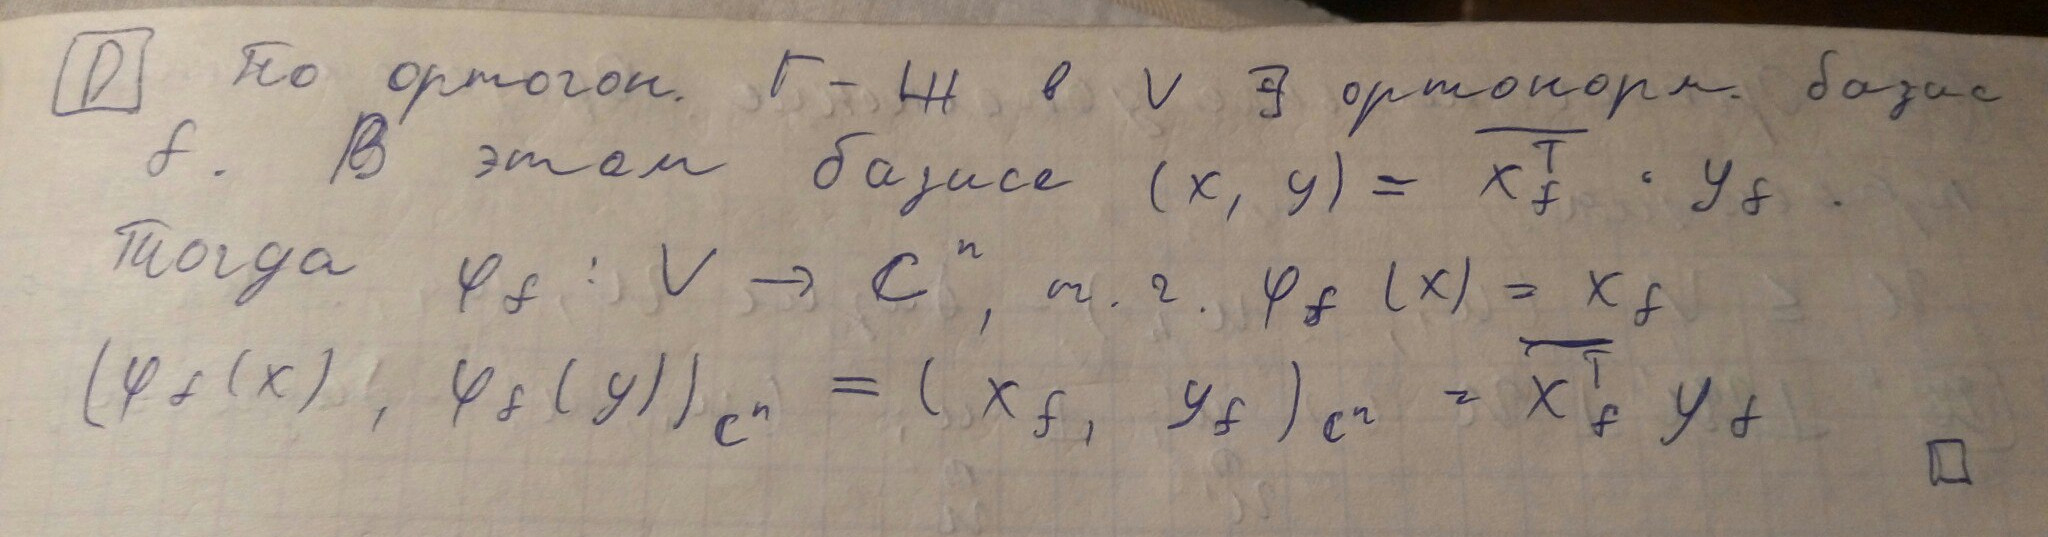 D По ортогон. Г-Ш в V ∃ ортонорм. базис
f. В этом базисе (x, y) = \overline{x_f^T} · y_f.
Тогда φ_f : V → C^n, т.ч. φ_f (x) = x_f
(φ_f(x), φ_f(y))_{C^n} = (x_f, y_f)_{C^n} = \overline{x_f^T} y_f
□